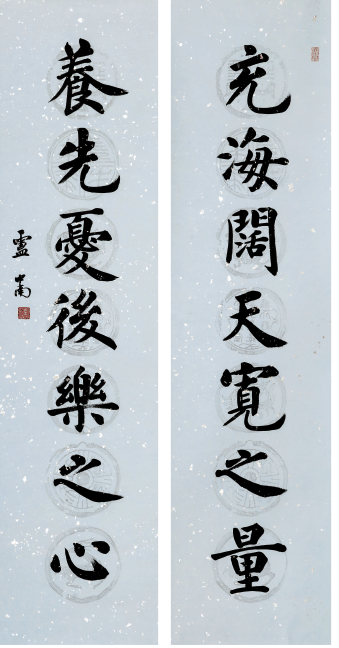 充海闊天寬之量
養先憂後樂之心